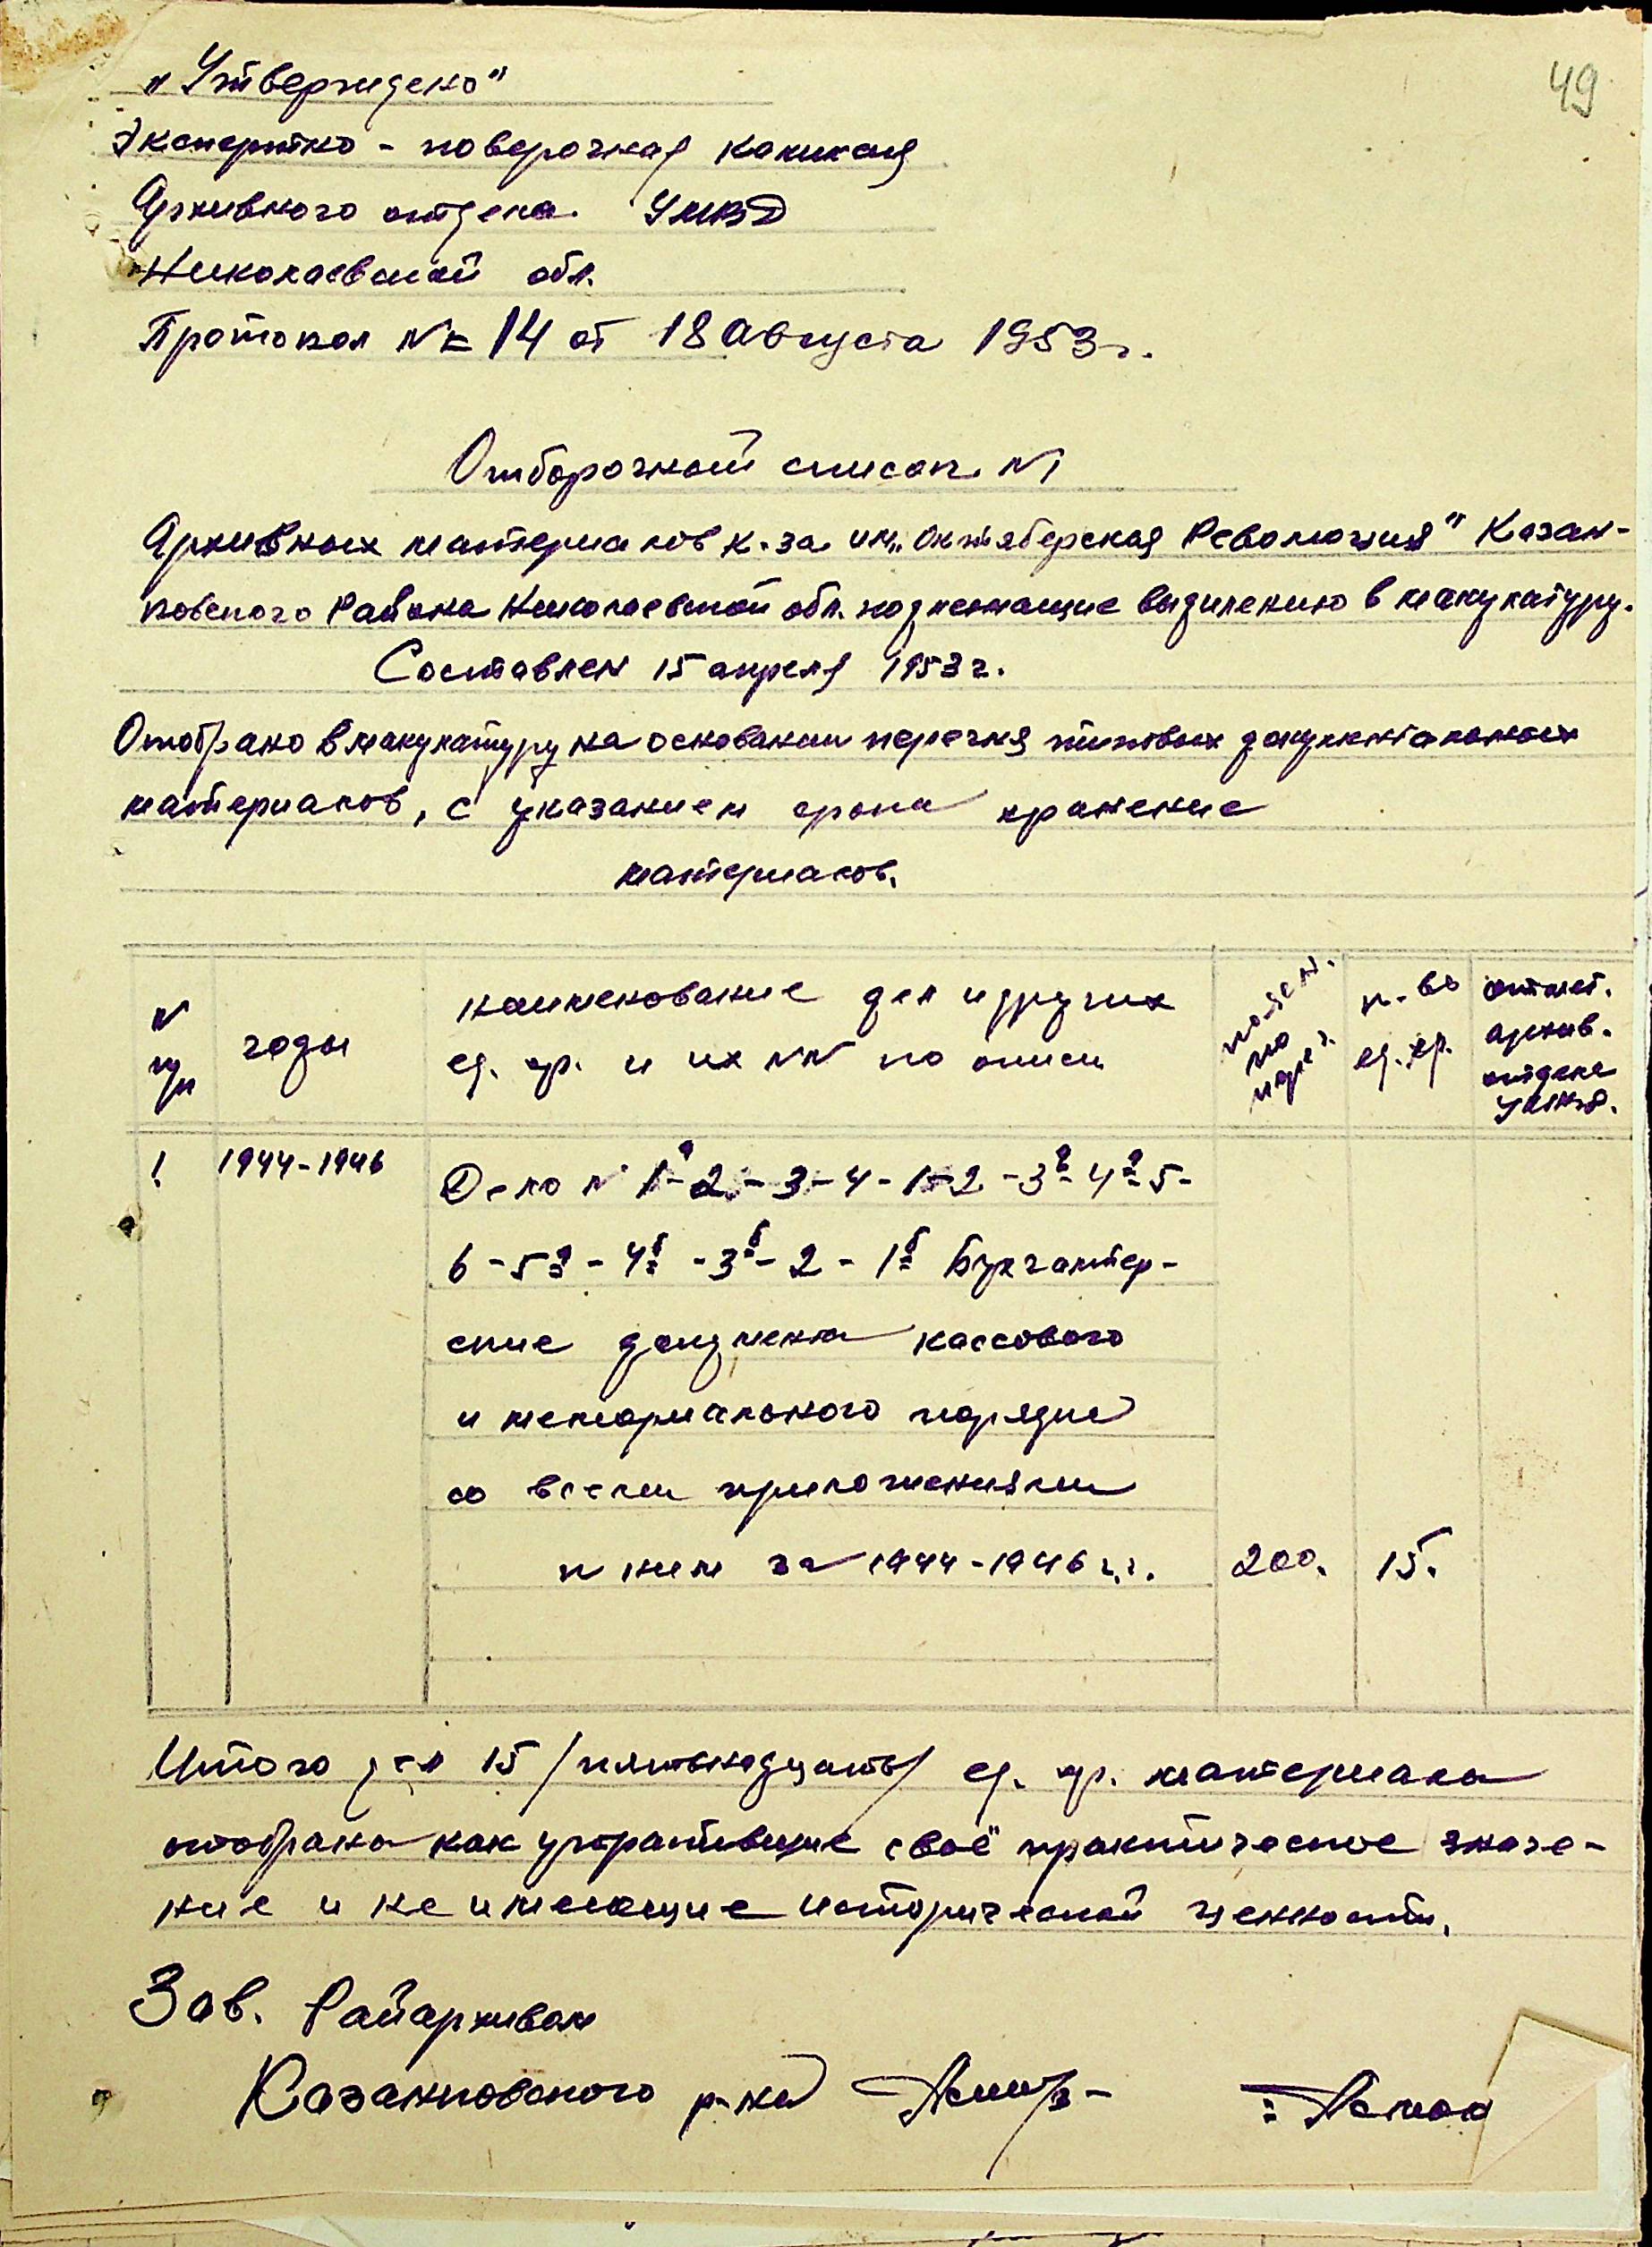 49
„Утверждено"
Экспертно - поверочная комисия
Архивного отдела УМВД
Николаевской обл.
Протокол № 14 от 18 августа 1953 г.
Отборочный список №1
Архивных материалов к-за им „Октяберская Революция" Казан-
ковского Района Николаевской обл. подлежащие выделению в макулатуру.
Составлен 15 апреля 1953 г.
Отобрано в макулатуру на основании перечня типовых документальных
материалов, с указанием срока хранение
материалов.
N п/п
годы
наименование дел и других
ед. хр. и их NN по описи
по переч.
к-во
ед. хр.
отмет.
архив.
отдела
УМВД.
1 1944-1946 Дело N 1а-2-3-4-1-2-3а-4а-5-
6-5а-4б-3б-2-1б Бухгалтер-
ские документы кассового
и мемориального порядка
со всеми приложениями
к ним за 1944-1946 г.г. 200. 15.
Итого дел 15 /пятьнадцать/ ед. хр. материала
отобрано как утратившие своё практическое значе-
ние и не имеющие исторической ценности.
Зав. Райархивом
Казанковского р-на